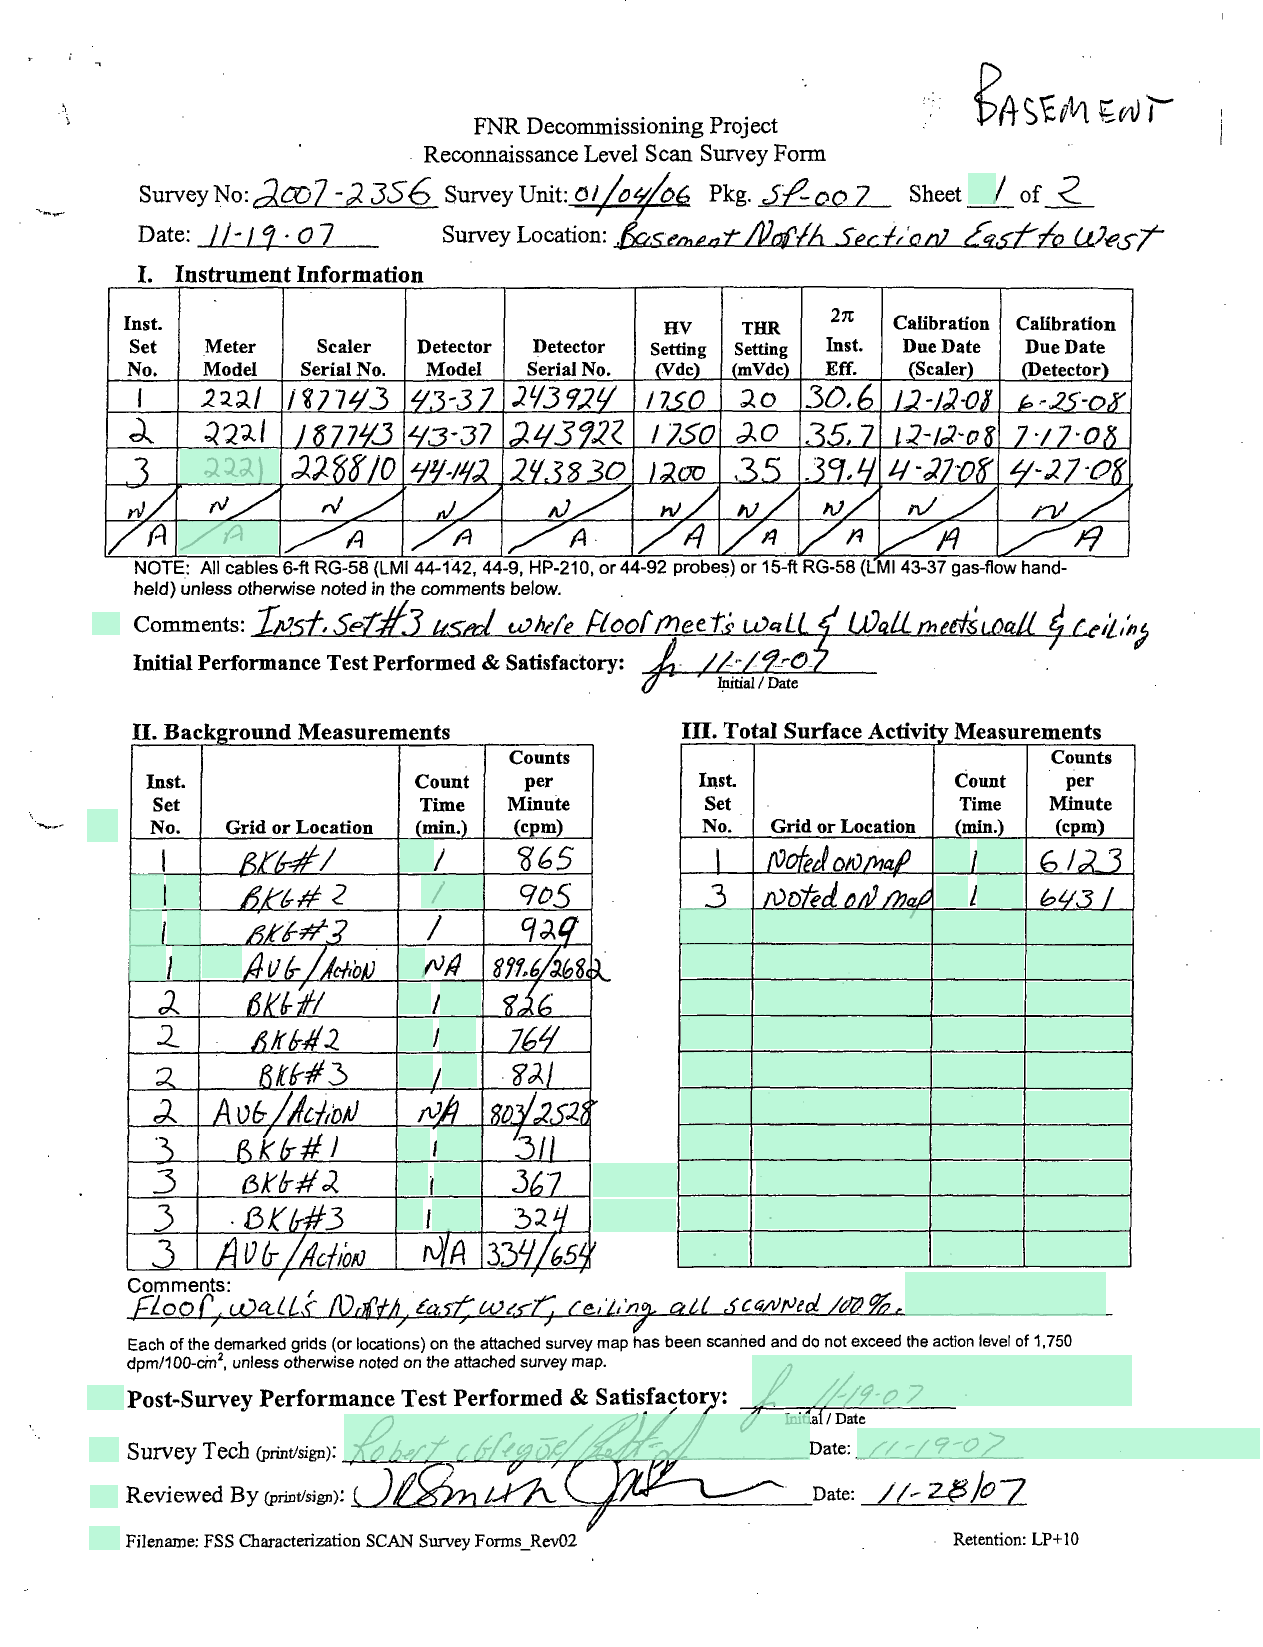 BASEMENT
FNR Decommissioning Project
Reconnaissance Level Scan Survey Form
Survey No: 2007-2356 Survey Unit: 01/04/06 Pkg. SP-007 Sheet 1 of 2
Date: 11-19-07 Survey Location: Basement North Section East to West
I. Instrument Information
Inst. Set No. Meter Model Scaler Serial No. Detector Model Detector Serial No. HV Setting (Vdc) THR Setting (mVdc) 2π Inst. Eff. Calibration Due Date (Scaler) Calibration Due Date (Detector)
1 2221 187743 43-37 243924 1750 20 30.6 12-12-08 6-25-08
2 2221 187743 43-37 243922 1750 20 35.7 12-12-08 7-17-08
3 2221 228810 44-142 243830 1200 35 39.4 4-27-08 4-27-08
N/A N/A N/A N/A N/A N/A N/A N/A N/A N/A
NOTE: All cables 6-ft RG-58 (LMI 44-142, 44-9, HP-210, or 44-92 probes) or 15-ft RG-58 (LMI 43-37 gas-flow hand-
held) unless otherwise noted in the comments below.
Comments: Inst. Set #3 used where Floor meets wall & Wall meets wall & ceiling
Initial Performance Test Performed & Satisfactory: 11-19-07
Initial / Date
II. Background Measurements
Inst. Set No. Grid or Location Count Time (min.) Counts per Minute (cpm)
1 BKG#1 1 865
1 BKG#2 1 905
1 BKG#3 1 929
1 AVG/Action NA 899.6/2682
2 BKG#1 1 826
2 BKG#2 1 764
2 BKG#3 1 821
2 AVG/Action N/A 803/2528
3 BKG#1 1 311
3 BKG#2 1 367
3 BKG#3 1 324
3 AVG/Action N/A 334/654
III. Total Surface Activity Measurements
Inst. Set No. Grid or Location Count Time (min.) Counts per Minute (cpm)
1 Noted on map 1 6123
3 Noted on map 1 6431
Comments:
Floor, walls North, East, West, ceiling all scanned 100%.
Each of the demarked grids (or locations) on the attached survey map has been scanned and do not exceed the action level of 1,750
dpm/100-cm², unless otherwise noted on the attached survey map.
Post-Survey Performance Test Performed & Satisfactory: 11-19-07
Initial / Date
Survey Tech (print/sign): Robert Date: 11-19-07
Reviewed By (print/sign): Smith Date: 11-28/07
Filename: FSS Characterization SCAN Survey Forms_Rev02 Retention: LP+10